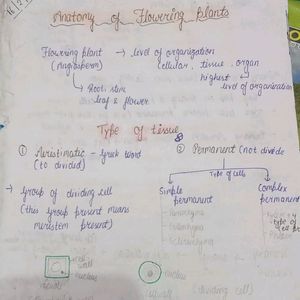 Anatomy of Flowering Plants
Flowering plant → level of organization
(Angiosperm) cellular, tissue, organ
↳ Root, stem highest
leaf & flower level of organization
Type of tissue
① Meristimatic - Greek word
(to divided)
② Permanent (not divide
Type of cells
→ Group of dividing cell
(this group present means
meristem present)
Simple
permanent
Complex
permanent
Type of
cell
Parenchyma
Sclerenchyma
cell
wall
nucleus
nucleus
(dividing cell)